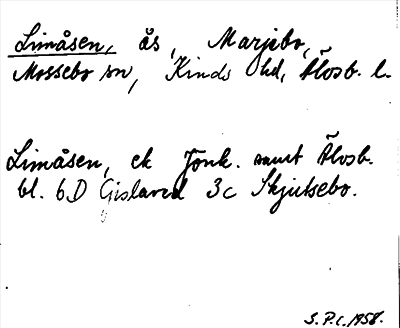 Limåsen, ås, Marjebo,
Mossebo sn, Kinds hd, Älvsb. l.
Limåsen, ek Jönk. samt Älvsb.
bl. 6D Gislaved 3c Skjutsebo.
S.P.C. 1958.